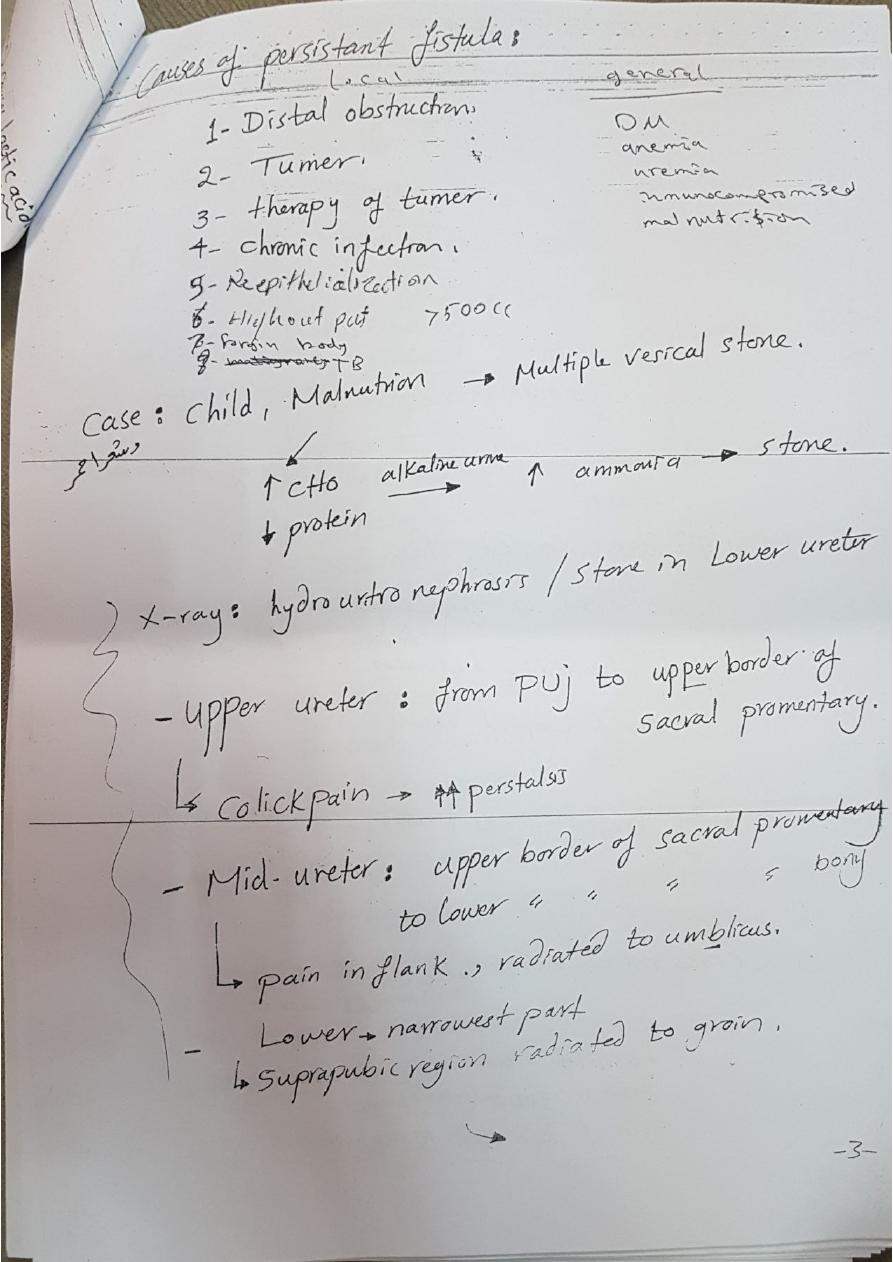 Causes of persistant fistula:
Local general
1- Distal obstruction. DM
2- Tumer. anemia
uremia
3- therapy of tumer. immunocompromised
4- chronic infection. malnutrition
5- Reepithelialization
6- High out put >500cc
7- forgin body
8- TB
Case: Child, Malnutrion → Multiple vesical stone.
↑ CHO alkaline urine → ↑ ammonia → stone.
↓ protein
X-ray: hydrourtronephrosis / stone in Lower ureter
- Upper ureter: from PUj to upper border of
sacral promentary.
↳ Colick pain → ↑↑ perstalsis
- Mid-ureter: upper border of sacral promentary
to lower " " " " bony
↳ pain in flank., radiated to umblicus.
- Lower → narrowest part
↳ Suprapubic region radiated to groin.
→
-3-